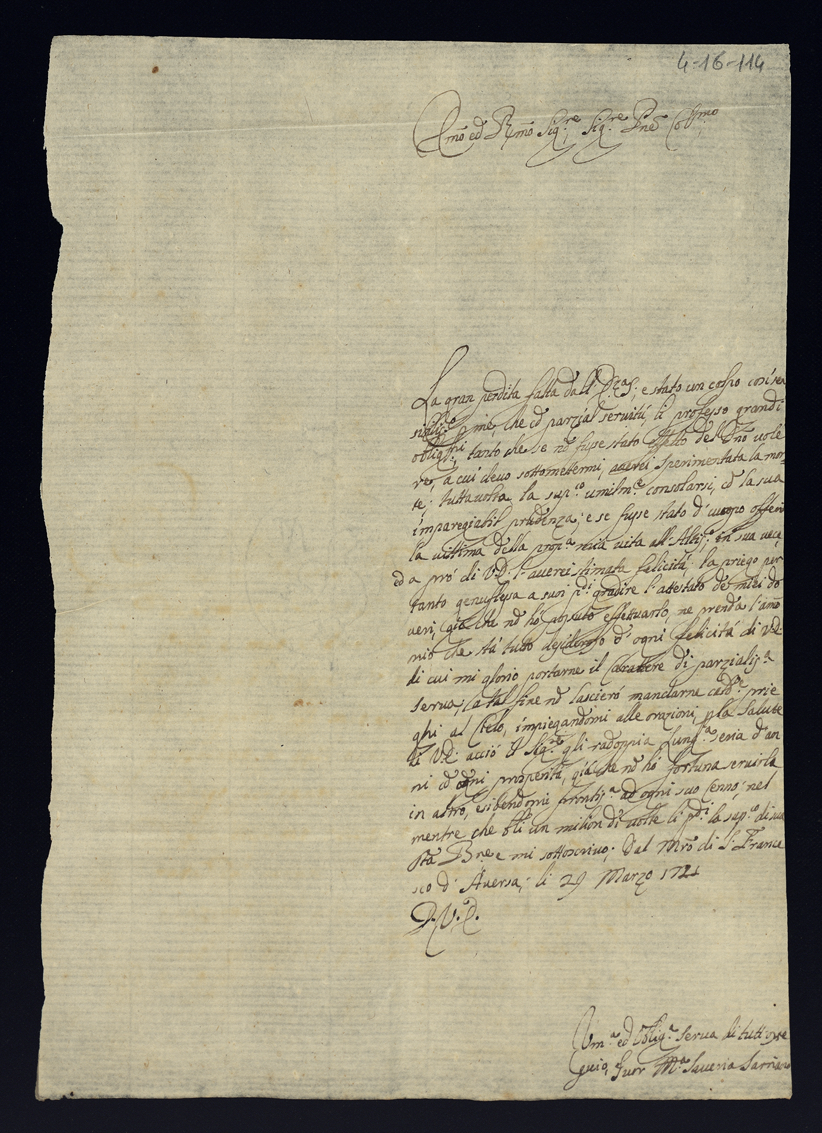 4-16-114
Emõ ed Rmõ Sig.re Sig.re Pnẽ Col.mo
La gran perdita fatta dall' è stato un colpo così sen
sibile me, che parzial servitù, li professo grandi
oblig.ni tanto che se nõ fusse stato effetto del Dño vole
re, a cui devo sottomettermi, averei sperimentata la mor
te; tuttavolta la sup.co umilm.e consolarsi, cõ la sua
impareggiabil prudenza; e se fusse stato d'uopo offerir
la vittima della prop.a mia vita all' Altiss.o in sua vece,
ed a prò di V.E. l'averei stimata felicità: la priego per
tanto genuflessa a suoi p.di gradire l'attestato de miei do
veri, già che nõ hò potuto effettuarlo, ne prenda l'ani
mo che stà tutto desideroso d' ogni felicità di V.E.
di cui mi glorio portarne il Carattere di parzialis.a
serva, a tal fine nõ lascierò mandarne cald.i prie
ghi al Cielo, impiegandomi alle orazioni, p la salute
di V.E. acciò il Sig.re gli radoppia lung.a seria d'an
ni cõ ogni prosperità, già che nõ hò fortuna servirla
in altro, esibendomi prontis.a ad ogni suo Cenno; nel
mentre che un milion di volte li p.di la sup.co di sua
Bne e mi sottoscrivo; Dal Mrõ di S. France
sco d' Aversa, li 29 Marzo 1721
D. V. E.
Um.a ed Oblig.a Serva di tutt' osse
quio, Suor M.a Saveria Sarriano